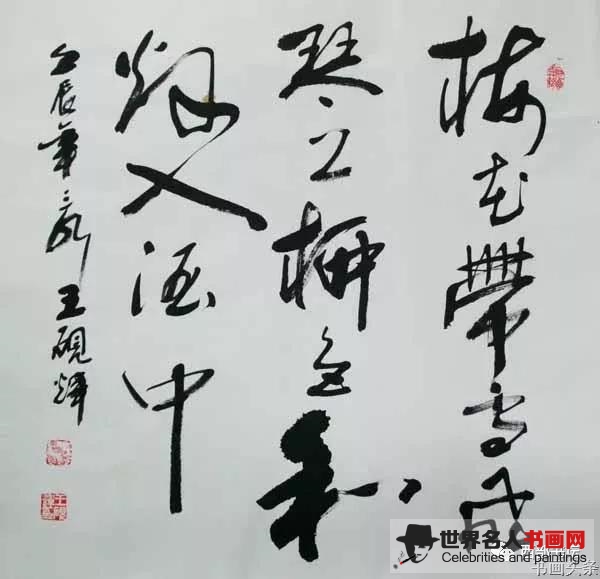 梅花帶雪飛
琴上柳色和
烟入酒中
壬辰年 王硯煇
世界名人书画网
Celebrities and paintings
书画头条